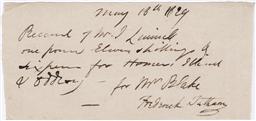 May 18th 1829
Received of Mr. J Linnell
one pound Eleven shillings &
sixpence for Homers Illiad
& Oddssey — for Mrs Blake
— Frederick Tatham